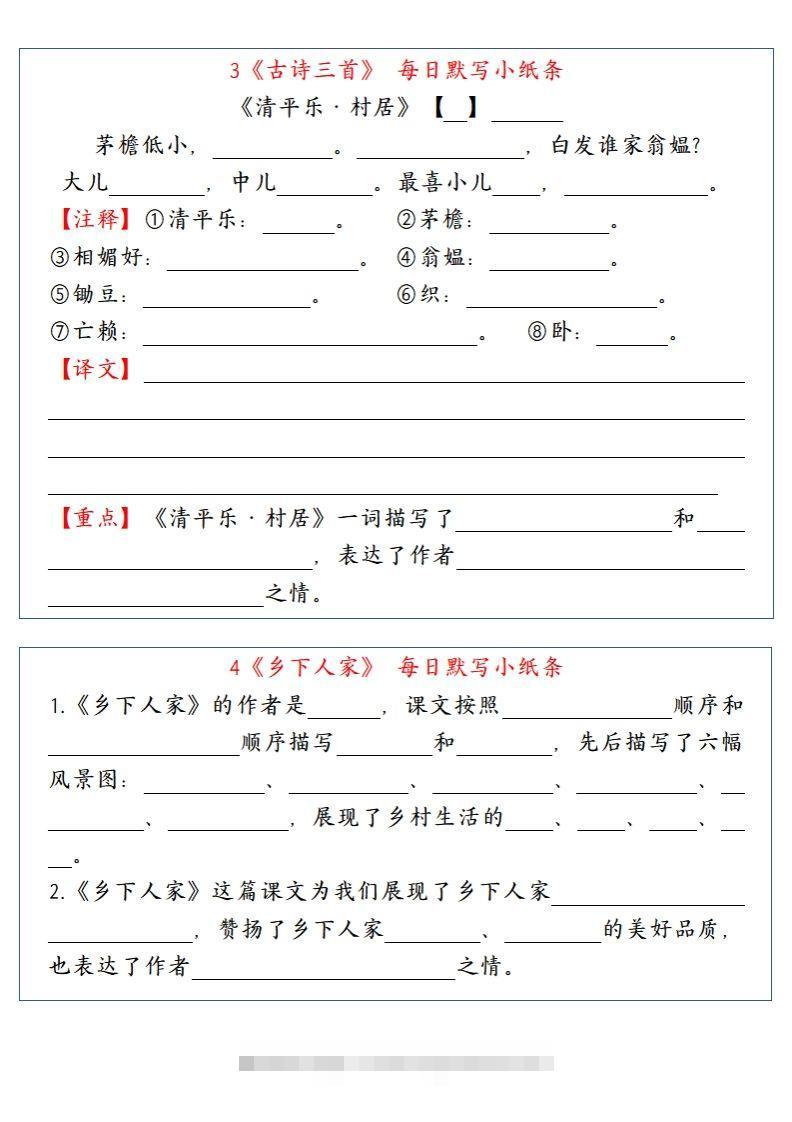 3《古诗三首》 每日默写小纸条
《清平乐·村居》【__】______
茅檐低小，__________。______________，白发谁家翁媪?
大儿________，中儿________。最喜小儿____，____________。
【注释】①清平乐：______。 ②茅檐：__________。
③相媚好：________________。 ④翁媪：__________。
⑤锄豆：______________。 ⑥织：________________。
⑦亡赖：____________________________。 ⑧卧：______。
【译文】__________________________________________________
__________________________________________________________
__________________________________________________________
________________________________________________________
【重点】《清平乐·村居》一词描写了__________________和____
______________________，表达了作者________________________
__________________之情。
4《乡下人家》 每日默写小纸条
1.《乡下人家》的作者是______，课文按照______________顺序和
________________顺序描写________和________，先后描写了六幅
风景图：__________、__________、__________、__________、__
________、__________，展现了乡村生活的____、____、____、__
__。
2.《乡下人家》这篇课文为我们展现了乡下人家________________
____________，赞扬了乡下人家________、________的美好品质，
也表达了作者______________________之情。